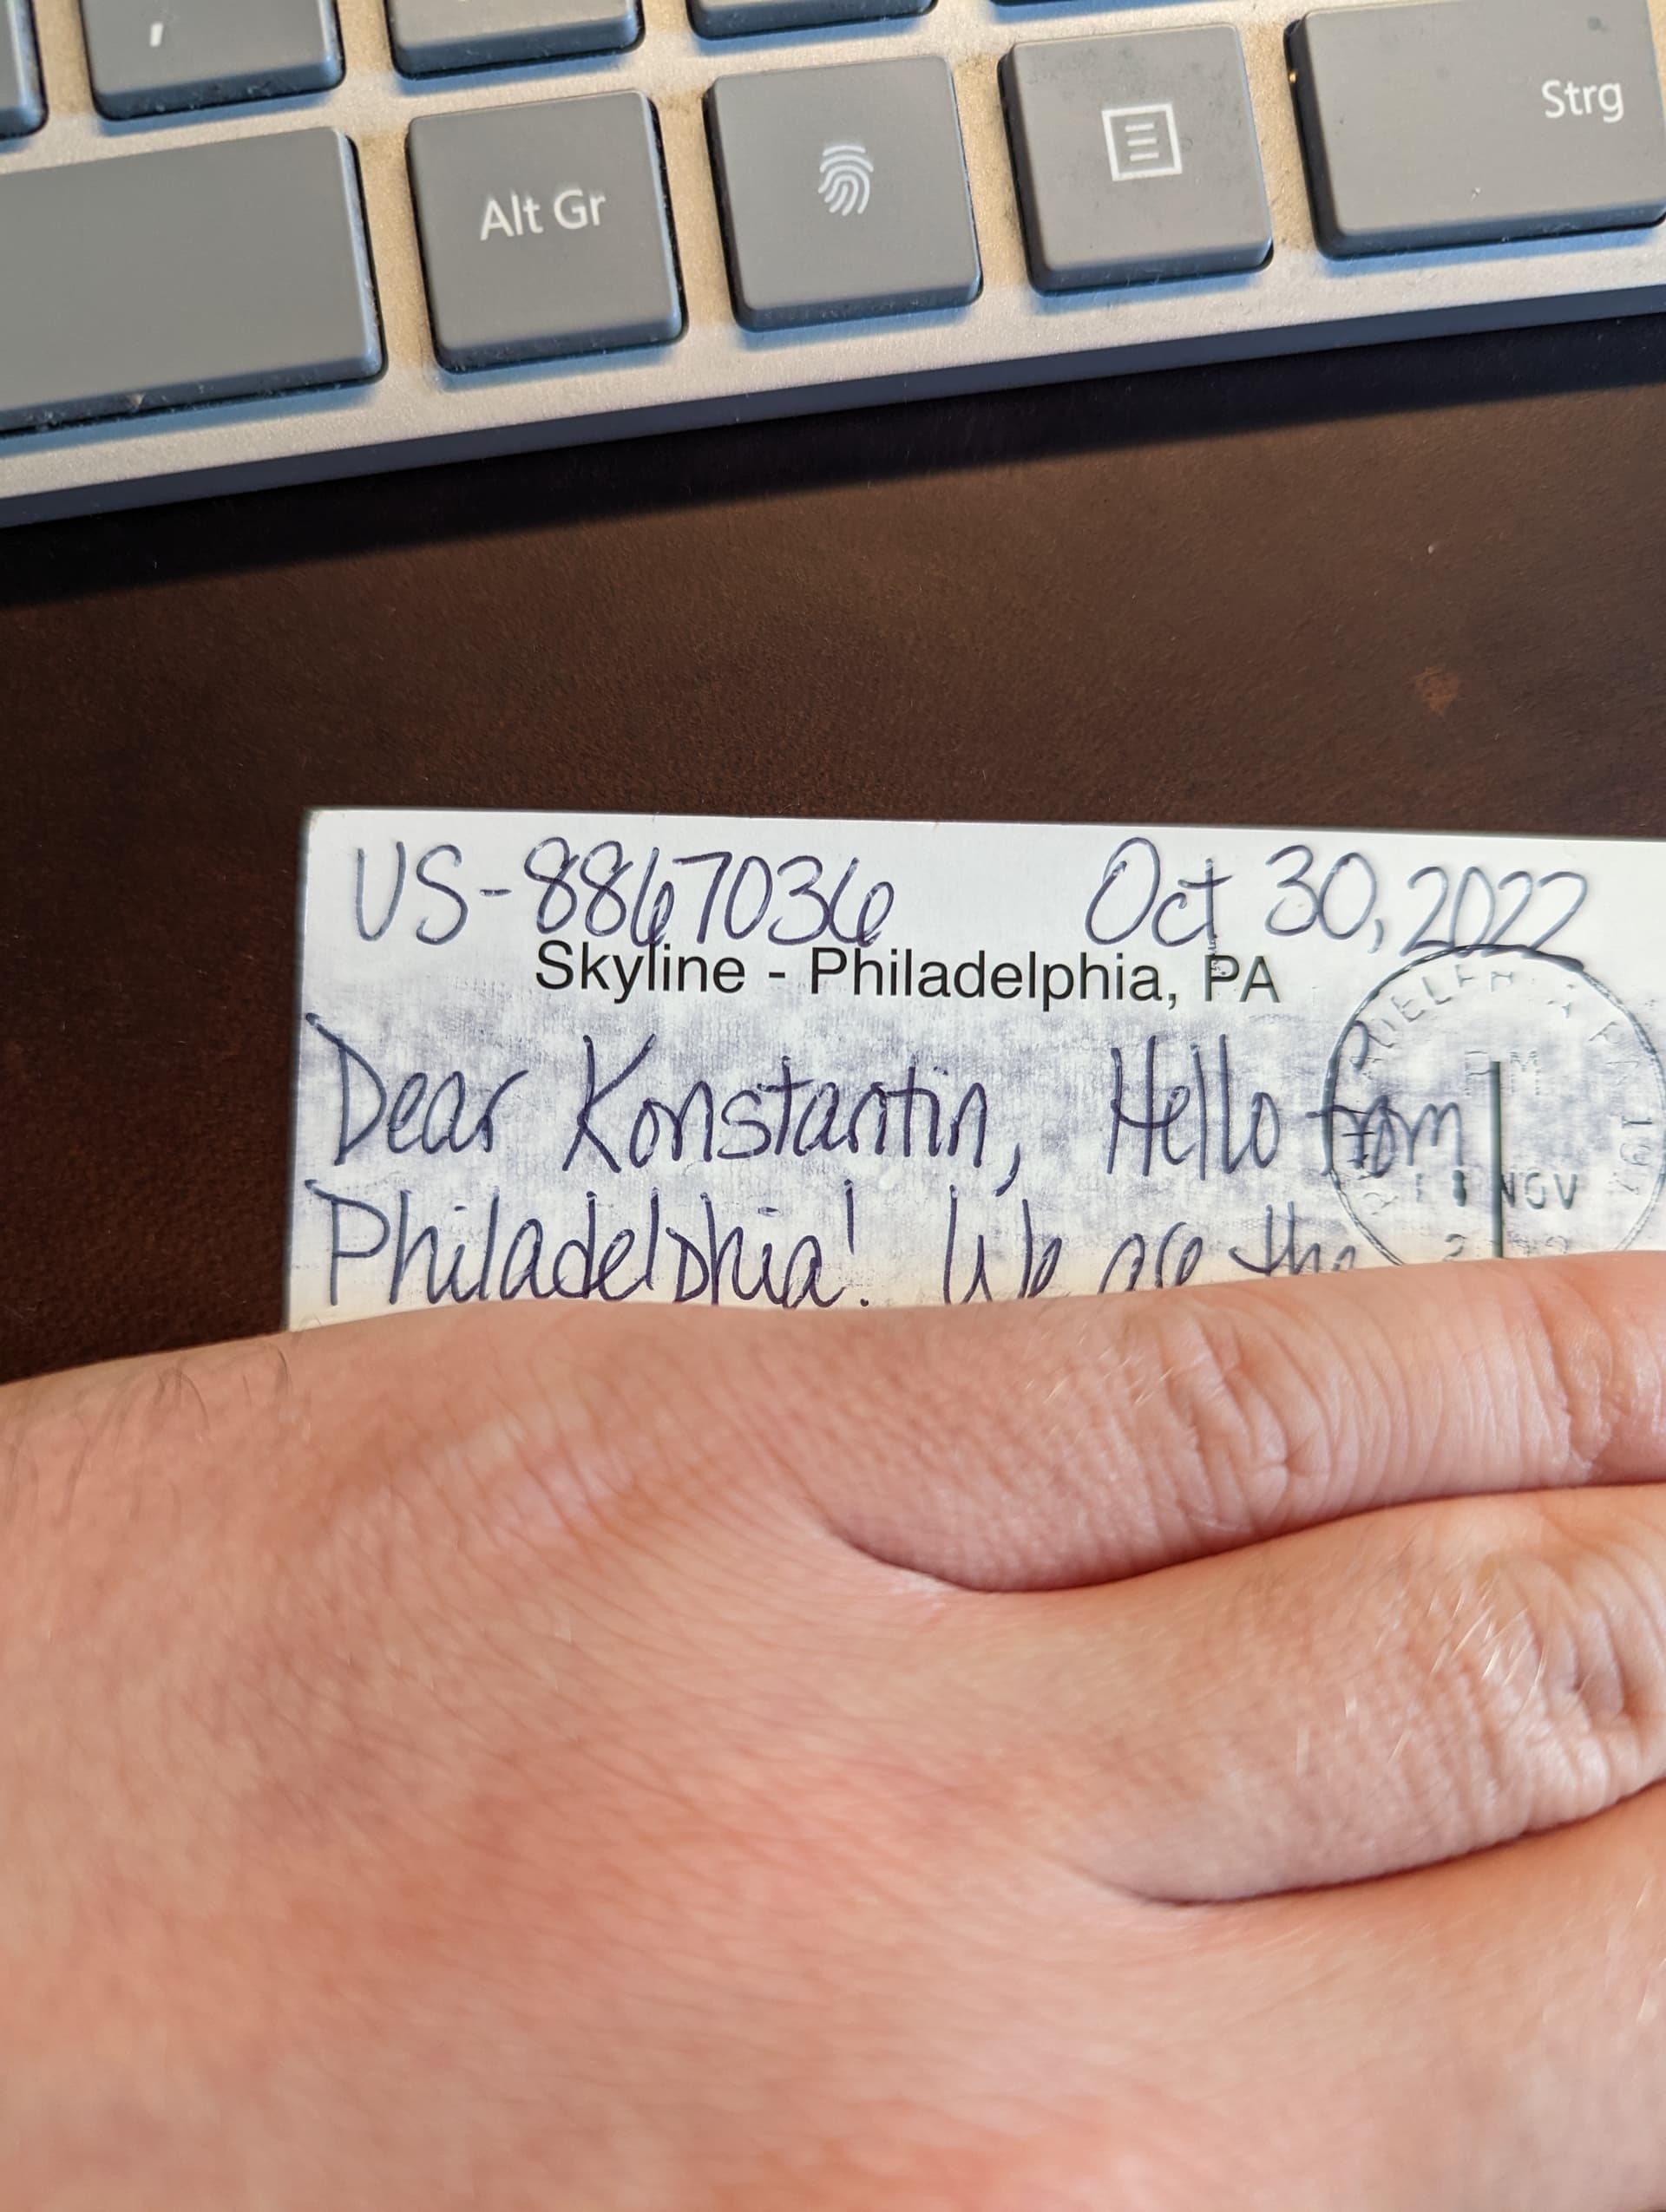 ,
Alt Gr
Strg
US-8867036 Oct 30, 2022
Skyline - Philadelphia, PA
Dear Konstantin, Hello from
Philadelphia! We are the
PM
NOV